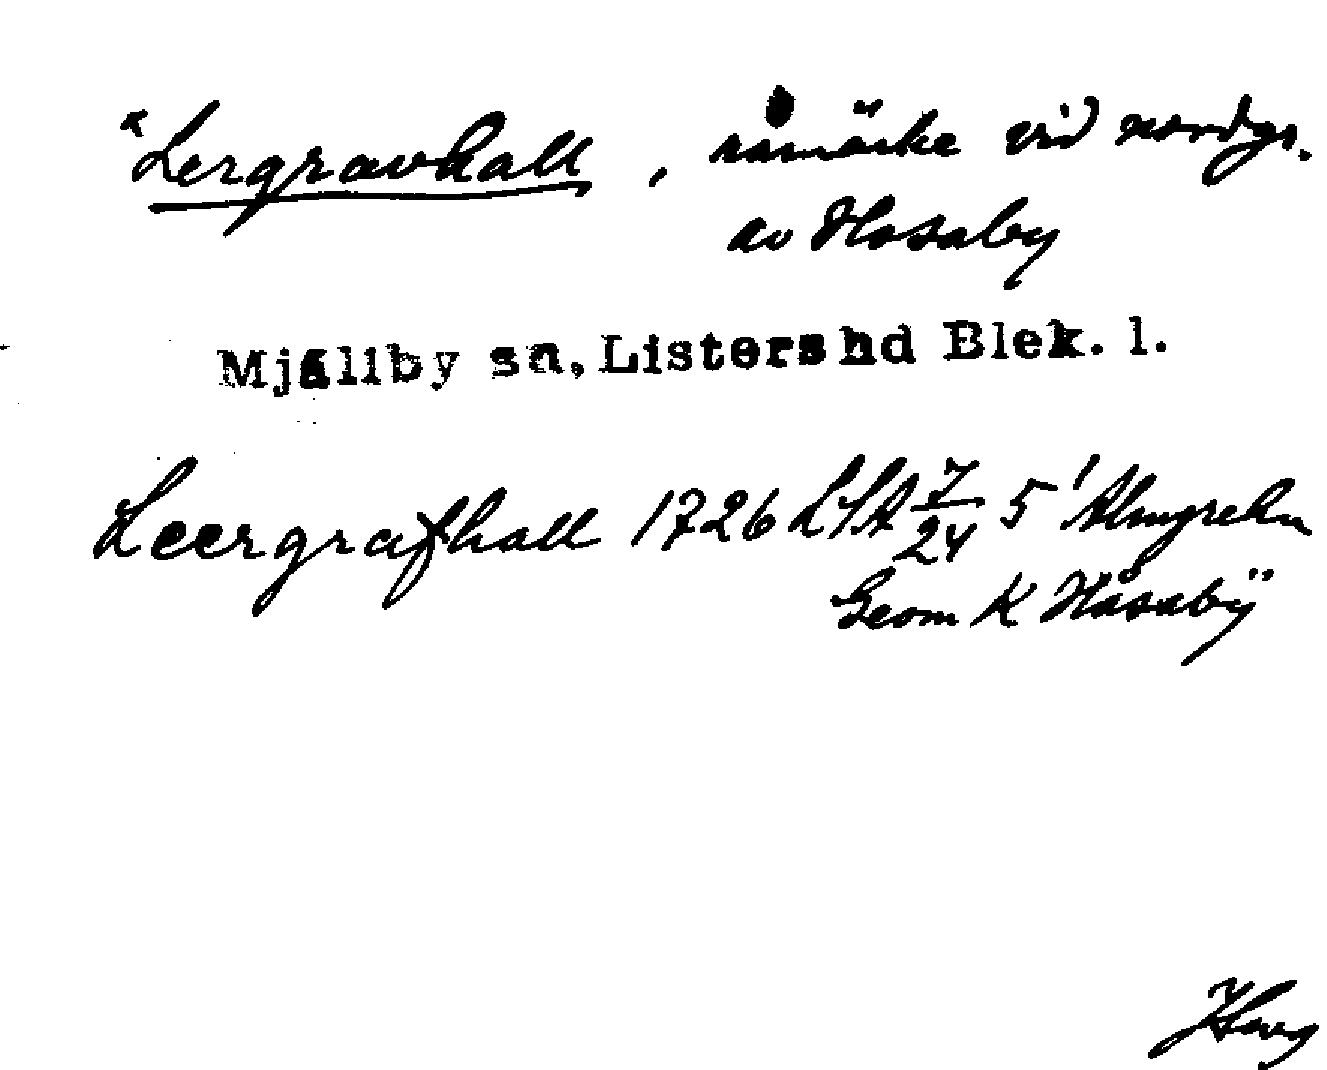 *Lergravhall, råmärke vid nordgr.
av Hosaby
Mjällby sn, Listers hd Blek. l.
Leergrafhall 1726 LSA 7/24 5' Almgrehn
Geom K Håsabÿ